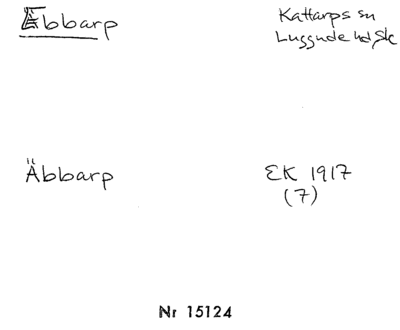 Äbbarp
Kattarps sn
Luggude hd, Sk
Äbbarp
EK 1917
(7)
Nr 15124